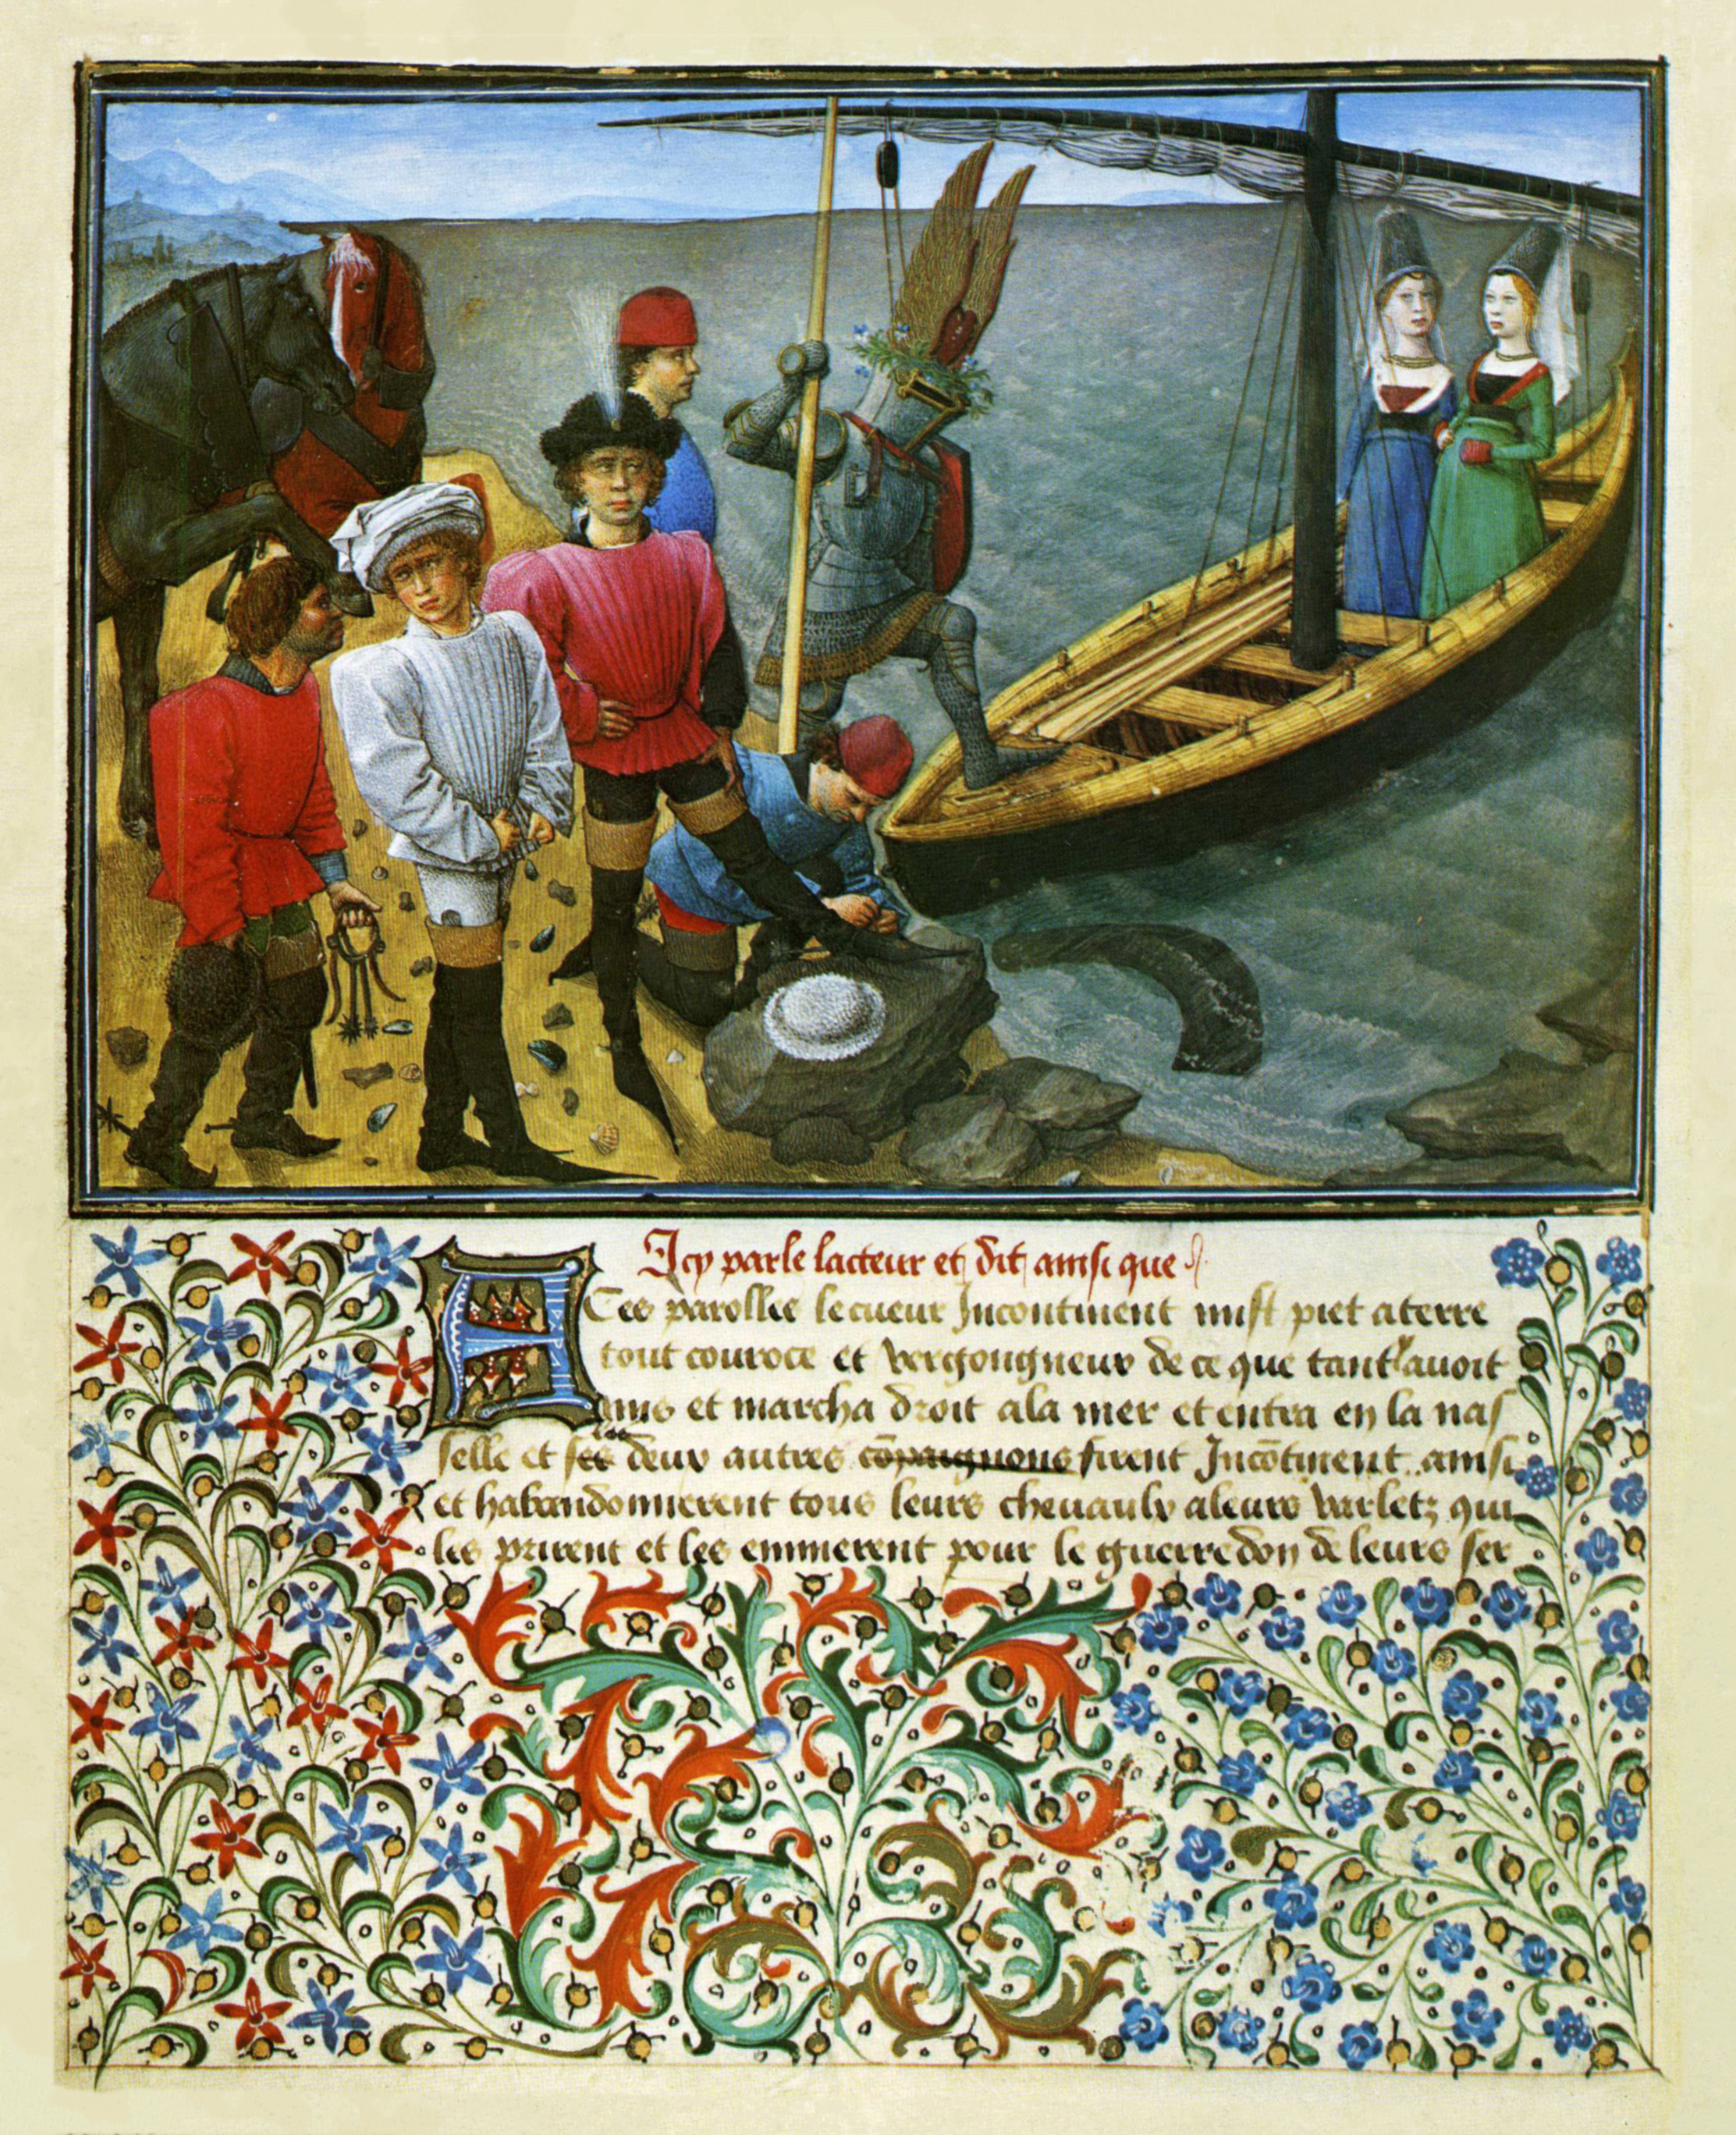 Icy parle lacteur et dit ainsi que
A Ces parolles le cueur Incontinent mist piet a terre
tout couroce et vergongneux de ce que tant lavoit
mis et marcha droit ala mer et entra en la nas
selle et ses deux autres cōpaignons firent Incōtinent ainsi
et habandonnerent tous leurs chevaulx a leurs varletz qui
les prirent et les emmerent pour le guerredon de leurs ser